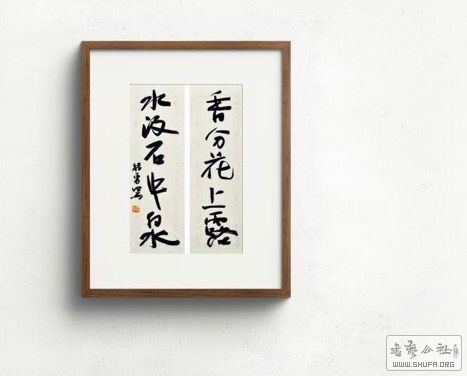 香分花上露
水汲石中泉
書藝公社
WWW.SHUFA.ORG